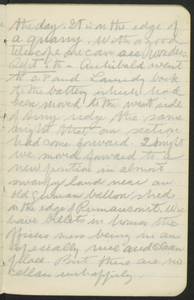 the dan. It is on the edge of
a quarry. With a good
telescope we can see
Sept. 5th - Archibald went
to O.P. and Laundy took
to the battery which had
been moved to the west side
of Army ridge the same
night that our section
had come forward. Tonight
we moved forward to a
new position in almost
swampy land near an
old German balloon shed
on the edge of
have billets in houses the
officers mess being in an
especially nice and clean
place. But there are no
cellars unhappily.